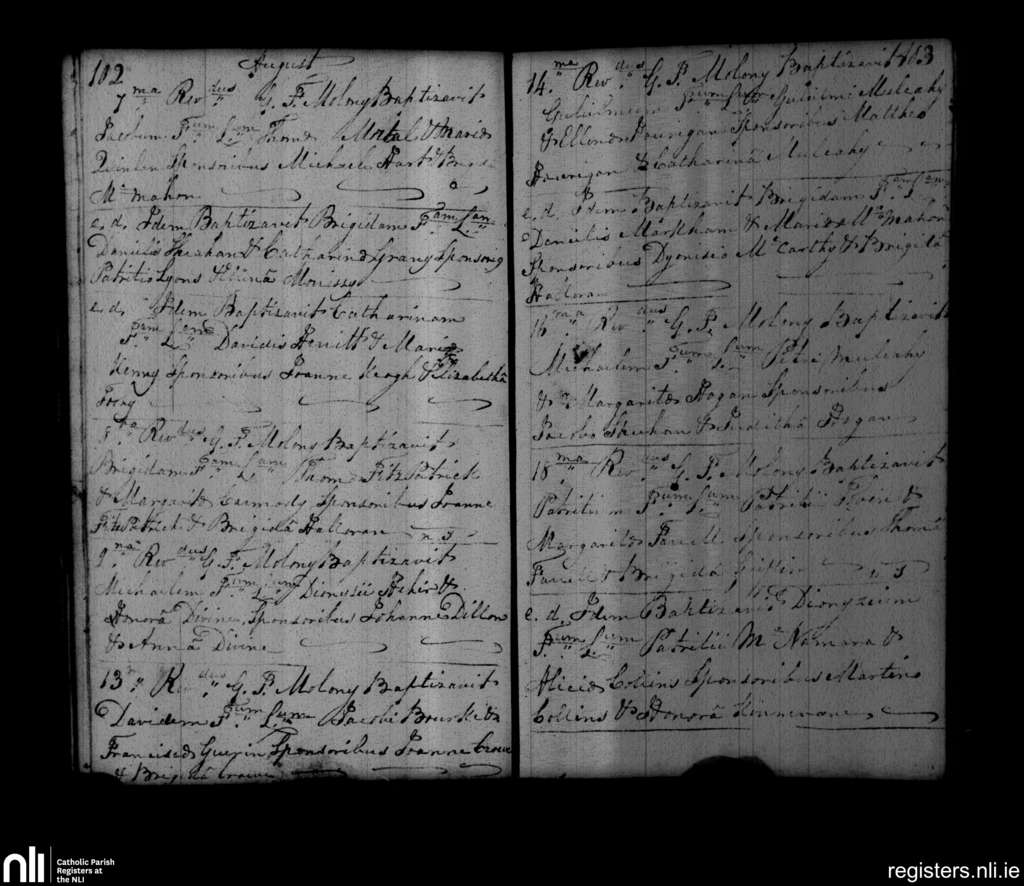 102
August
7 ma Rev dus G. P. Molony Baptizavit
Jacobum F um L um Thomæ & Mariæ
Quinlin Sponsoribus Michaele Hart & Brigida
Mc mahon
e. d. Idem Baptizavit Brigidam F am L am
Danielis Sheehan & Catharinæ Sponsorib
Patritio Lyons &
e. d. Idem Baptizavit Catharinam
F am L am Davidis Hewitt & Mariæ
Kenny Sponsoribus Joanne Keogh & Elizabethâ
8 Rev dus G. P. Molony Baptizavit
Brigidam F am L am Thomæ Fitzpatrick
& Margaritæ Carmody Sponsoribus Joanne
Fitzpatrick & Brigidâ Halloran
9 na Rev dus G. P. Molony Baptizavit
Michaelem F um L um Dionysii Hehir &
Honorâ Divine Sponsoribus Johanne Dillon
& Annâ Divine
13 Rev dus G. P. Molony Baptizavit
Davidem F um L um Jacobi Bourke &
Franciscæ Guerin Sponsoribus Joanne Crowe
& Brigidâ Crowe
103
14 ma Rev dus G. P. Molony Baptizavit
Gulielmum F um L um Gulielmi Mulcahy
& Ellenæ Hourigan Sponsoribus Mattheo
Hourigan & Catharinâ Mulcahy
e. d. Idem Baptizavit Brigidam F am L am
Danielis Markham & Mariæ Mc mahon
Sponsoribus Dyonisio Mc Carthy & Brigidâ
Halloran
16 ma Rev dus G. P. Molony Baptizavit
Michaelem F um L um Petri Mulcahy
& Margaritæ Hogan Sponsoribus
Jacobo Sheehan & Judithâ Hogan
18 ma Rev dus G. P. Molony Baptizavit
Patritium F um L um Patritii &
Margaritæ Farrell Sponsoribus Thomâ
Farrell & Brigidâ Griffin
e. d. Idem Baptizavit Dionyzium
F um L um Patritii Mc Namara &
Aliciæ Collins Sponsoribus Martino
Collins & Honorâ Kinnerane
nli
Catholic Parish
Registers at
the NLI
registers.nli.ie